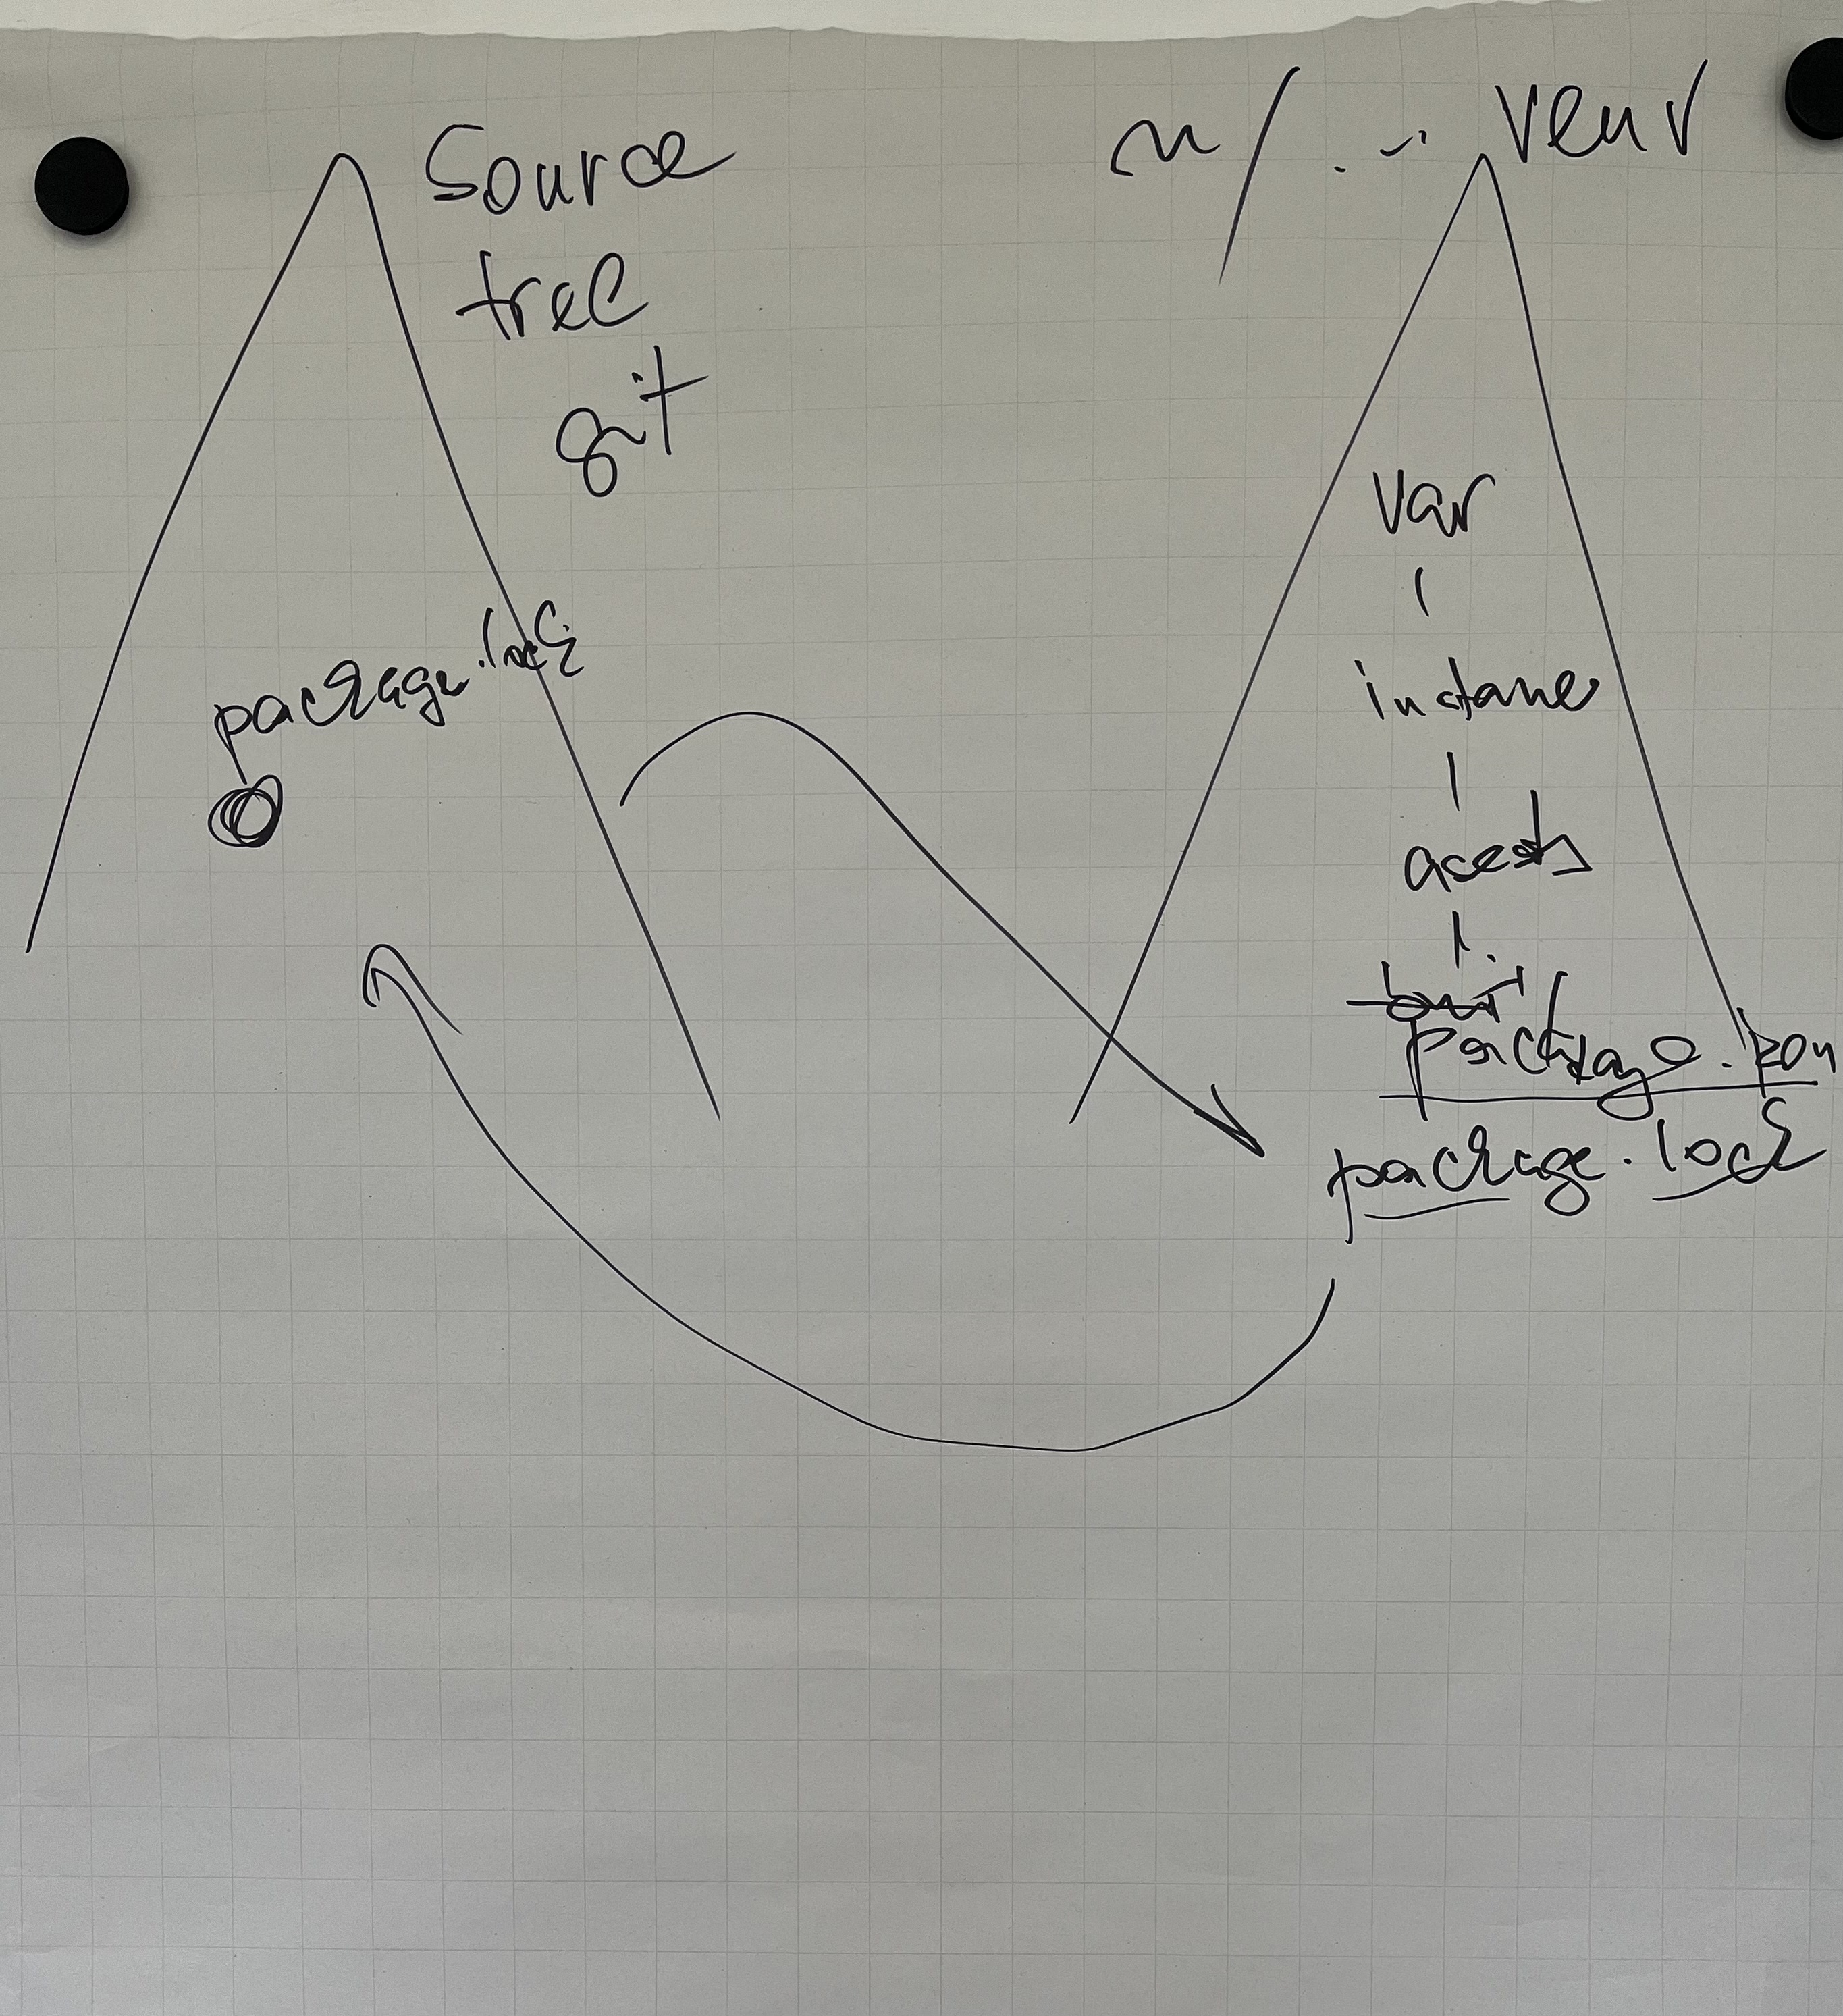 Source
tree
git
package.lock
~/... venv
var
instance
assets
package.json
package.lock